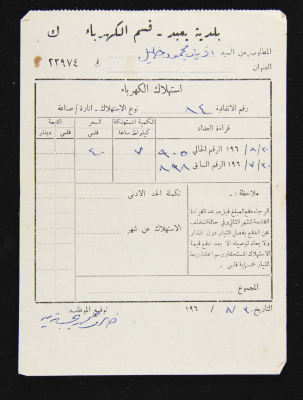 بلدية يعبد - قسم الكهرباء ك
المطلوب من السيد محمود
العنوان
٢٢٩٧٤
استهلاك الكهرباء
رقم الاتفاقية ٨٤ نوع الاستهلاك - انارة / صناعة
قراءة العداد
الكمية المستهلكة كيلواط ساعة
السعر فلس
القيمة
فلس دينار
٣٠ / ٨ / ١٩٦ الرقم الحالي ٩٠٥ ٧ ٤٠
٣٠ / ٧ / ١٩٦ الرقم السابق ٨٩٨
ملاحظة :-
الرجاء دفع المبلغ قبل موعد القراءة
القادمة للشهر التالي وفي حالة التخلف
عن الدفع يفصل التيار دون انذار
ولا يعاد توصيله الا بعد دفع قيمة
الاستهلاك المستحقة ورسم اعادة ربط
التيار خمسماية فلس
تكملة الحد الادنى
الاستهلاك عن شهر
المجموع
التاريخ ٣٠ / ٨ / ١٩٦
توقيع الموظف